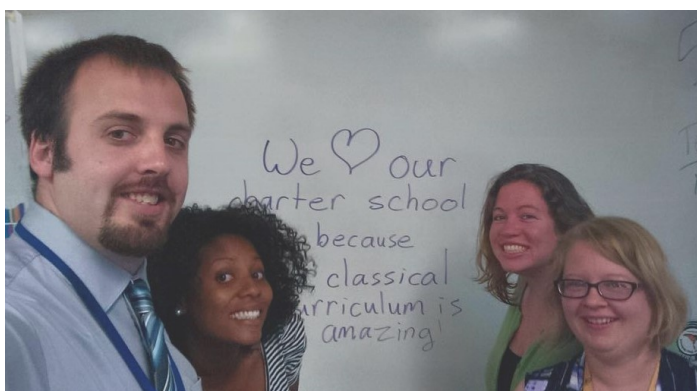 We ♡ our
charter school
because
classical
urriculum is
amazing!